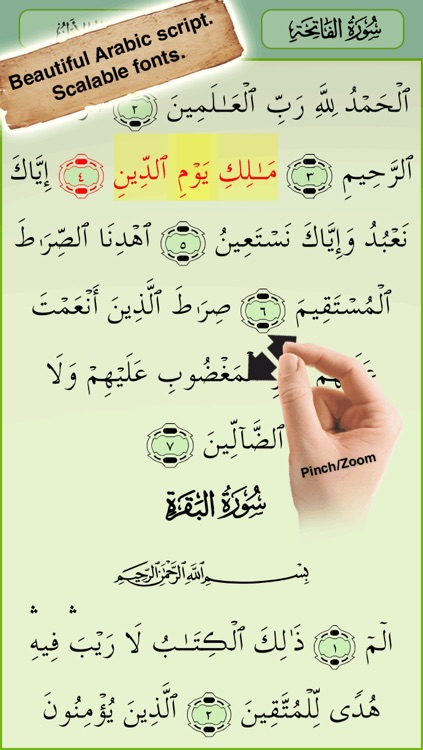 Beautiful Arabic script.
Scalable fonts.
سُورَةُ الفَاتِحَةِ
ٱلْحَمْدُ لِلَّهِ رَبِّ ٱلْعَـٰلَمِينَ ٢
ٱلرَّحِيمِ ٣ مَـٰلِكِ يَوْمِ ٱلدِّينِ ٤ إِيَّاكَ
نَعْبُدُ وَإِيَّاكَ نَسْتَعِينُ ٥ ٱهْدِنَا ٱلصِّرَٰطَ
ٱلْمُسْتَقِيمَ ٦ صِرَٰطَ ٱلَّذِينَ أَنْعَمْتَ
ٱلْمَغْضُوبِ عَلَيْهِمْ وَلَا
ٱلضَّآلِّينَ ٧
Pinch/Zoom
سُورَةُ البَقَرَةِ
بِسْمِ اللَّهِ الرَّحْمَٰنِ الرَّحِيمِ
الٓمٓ ١ ذَٰلِكَ ٱلْكِتَـٰبُ لَا رَيْبَ ۛ فِيهِ ۛ
هُدًى لِّلْمُتَّقِينَ ٢ ٱلَّذِينَ يُؤْمِنُونَ